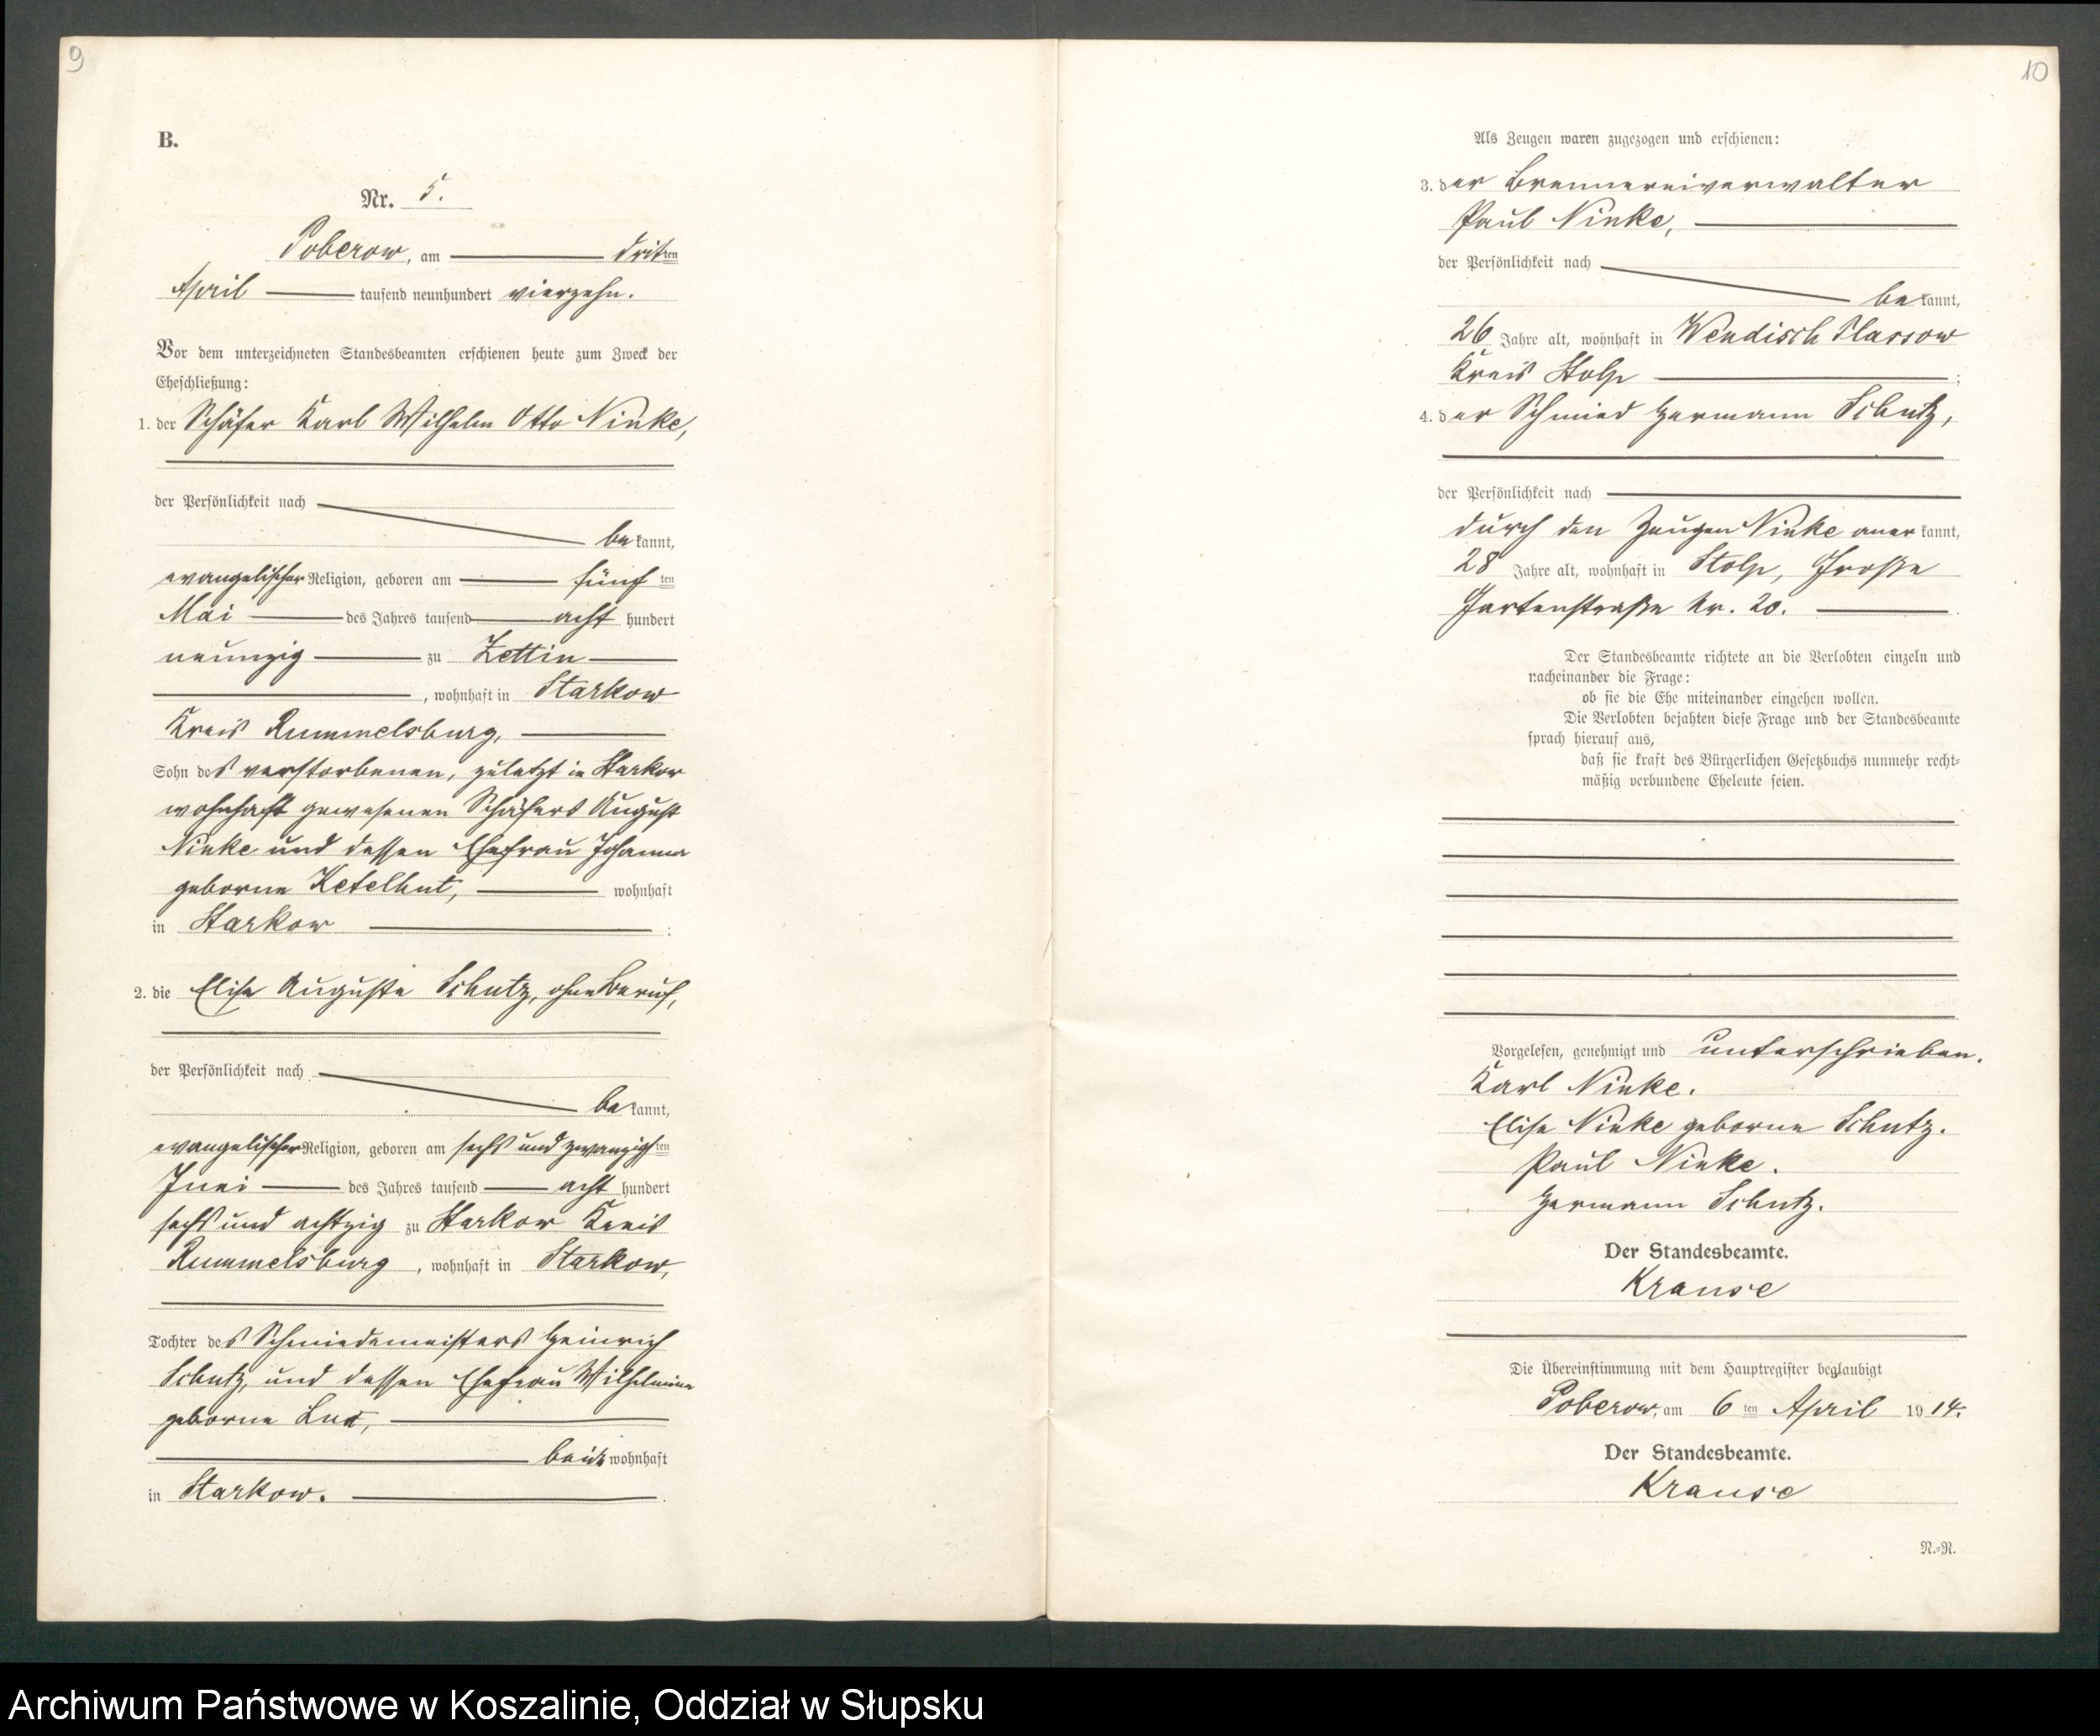 9
B.
Nr. 5.
Poberow, am dritten
April tausend neunhundert vierzehn.
Vor dem unterzeichneten Standesbeamten erschienen heute zum Zweck der
Eheschließung:
1. der Schäfer Karl Wilhelm Otto Ninke,
der Persönlichkeit nach
bekannt,
evangelischer Religion, geboren am fünften
Mai des Jahres tausend acht hundert
neunzig zu Zettin
, wohnhaft in Starkow
Kreis Rummelsburg,
Sohn des verstorbenen, zuletzt in Starkow
wohnhaft gewesenen Schäfers August
Ninke und dessen Ehefrau Johanna
geborne Ketelhut, wohnhaft
in Starkow ;
2. die Elise Auguste Schutz, ohne Beruf,
der Persönlichkeit nach
bekannt,
evangelischer Religion, geboren am sechs und zwanzigsten
Juni des Jahres tausend acht hundert
sechs und achtzig zu Starkow Kreis
Rummelsburg, wohnhaft in Starkow,
Tochter des Schmiedemeisters Heinrich
Schutz, und dessen Ehefrau Wilhelmine
geborne
beide wohnhaft
in Starkow.
10
Als Zeugen waren zugezogen und erschienen:
3. der Brennereiverwalter
Paul Ninke,
der Persönlichkeit nach
bekannt,
26 Jahre alt, wohnhaft in Wendisch Plassow
Kreis Stolp ;
4. der Schmied Hermann Schutz,
der Persönlichkeit nach
durch den Zeugen Ninke anerkannt,
28 Jahre alt, wohnhaft in Stolp, Große
Gartenstraße Nr. 20.
Der Standesbeamte richtete an die Verlobten einzeln und
nacheinander die Frage:
ob sie die Ehe miteinander eingehen wollen.
Die Verlobten bejahten diese Frage und der Standesbeamte
sprach hierauf aus,
daß sie kraft des Bürgerlichen Gesetzbuchs nunmehr recht-
mäßig verbundene Eheleute seien.
Vorgelesen, genehmigt und unterschrieben.
Karl Ninke.
Elise Ninke geborne Schutz.
Paul Ninke.
Hermann Schutz.
Der Standesbeamte.
Krause
Die Übereinstimmung mit dem Hauptregister beglaubigt
Poberow, am 6ten April 1914.
Der Standesbeamte.
Krause
N.-R.
Archiwum Państwowe w Koszalinie, Oddział w Słupsku